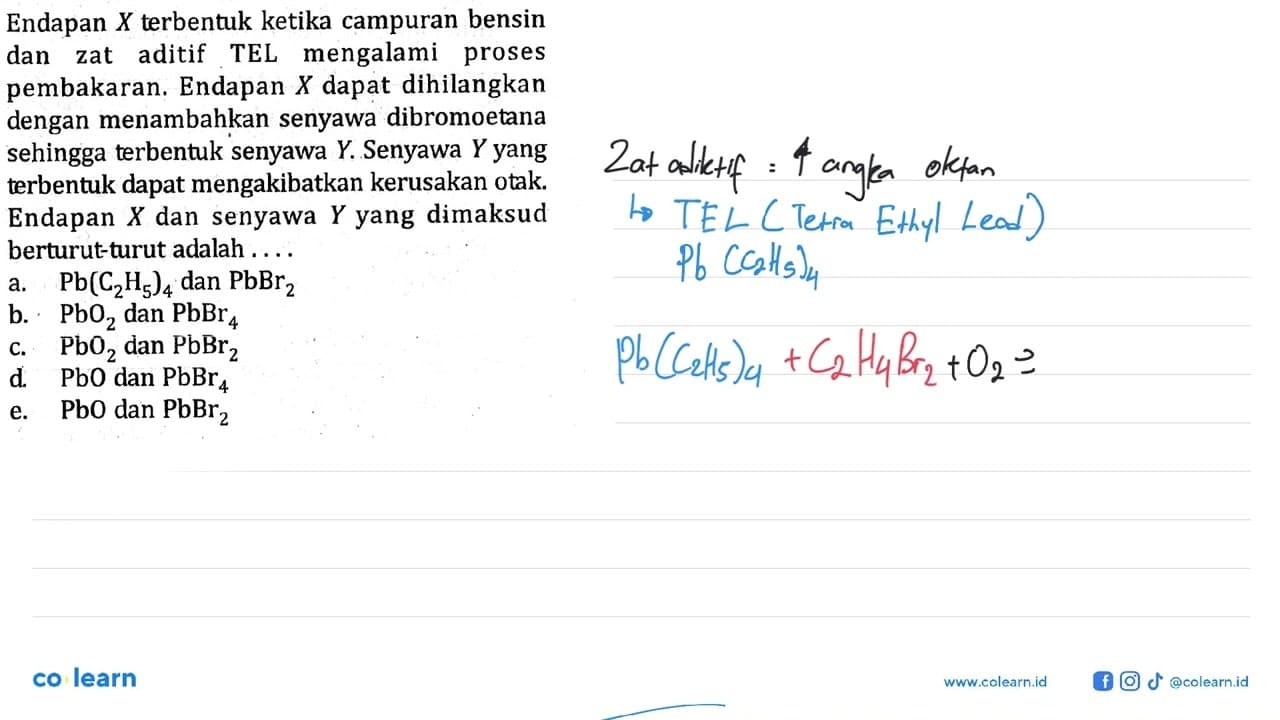 Endapan X terbentuk ketika campuran bensin
dan zat aditif TEL mengalami proses
pembakaran. Endapan X dapat dihilangkan
dengan menambahkan senyawa dibromoetana
sehingga terbentuk senyawa Y. Senyawa Y yang
terbentuk dapat mengakibatkan kerusakan otak.
Endapan X dan senyawa Y yang dimaksud
berturut-turut adalah ....
a. Pb(C₂H₅)₄ dan PbBr₂
b. PbO₂ dan PbBr₄
c. PbO₂ dan PbBr₂
d. PbO dan PbBr₄
e. PbO dan PbBr₂
Zat adiktif : ↑ angka oktan
↳ TEL (Tetra Ethyl Lead)
Pb (C₂H₅)₄
Pb(C₂H₅)₄ + C₂H₄Br₂ + O₂ →
co learn
www.colearn.id
@colearn.id